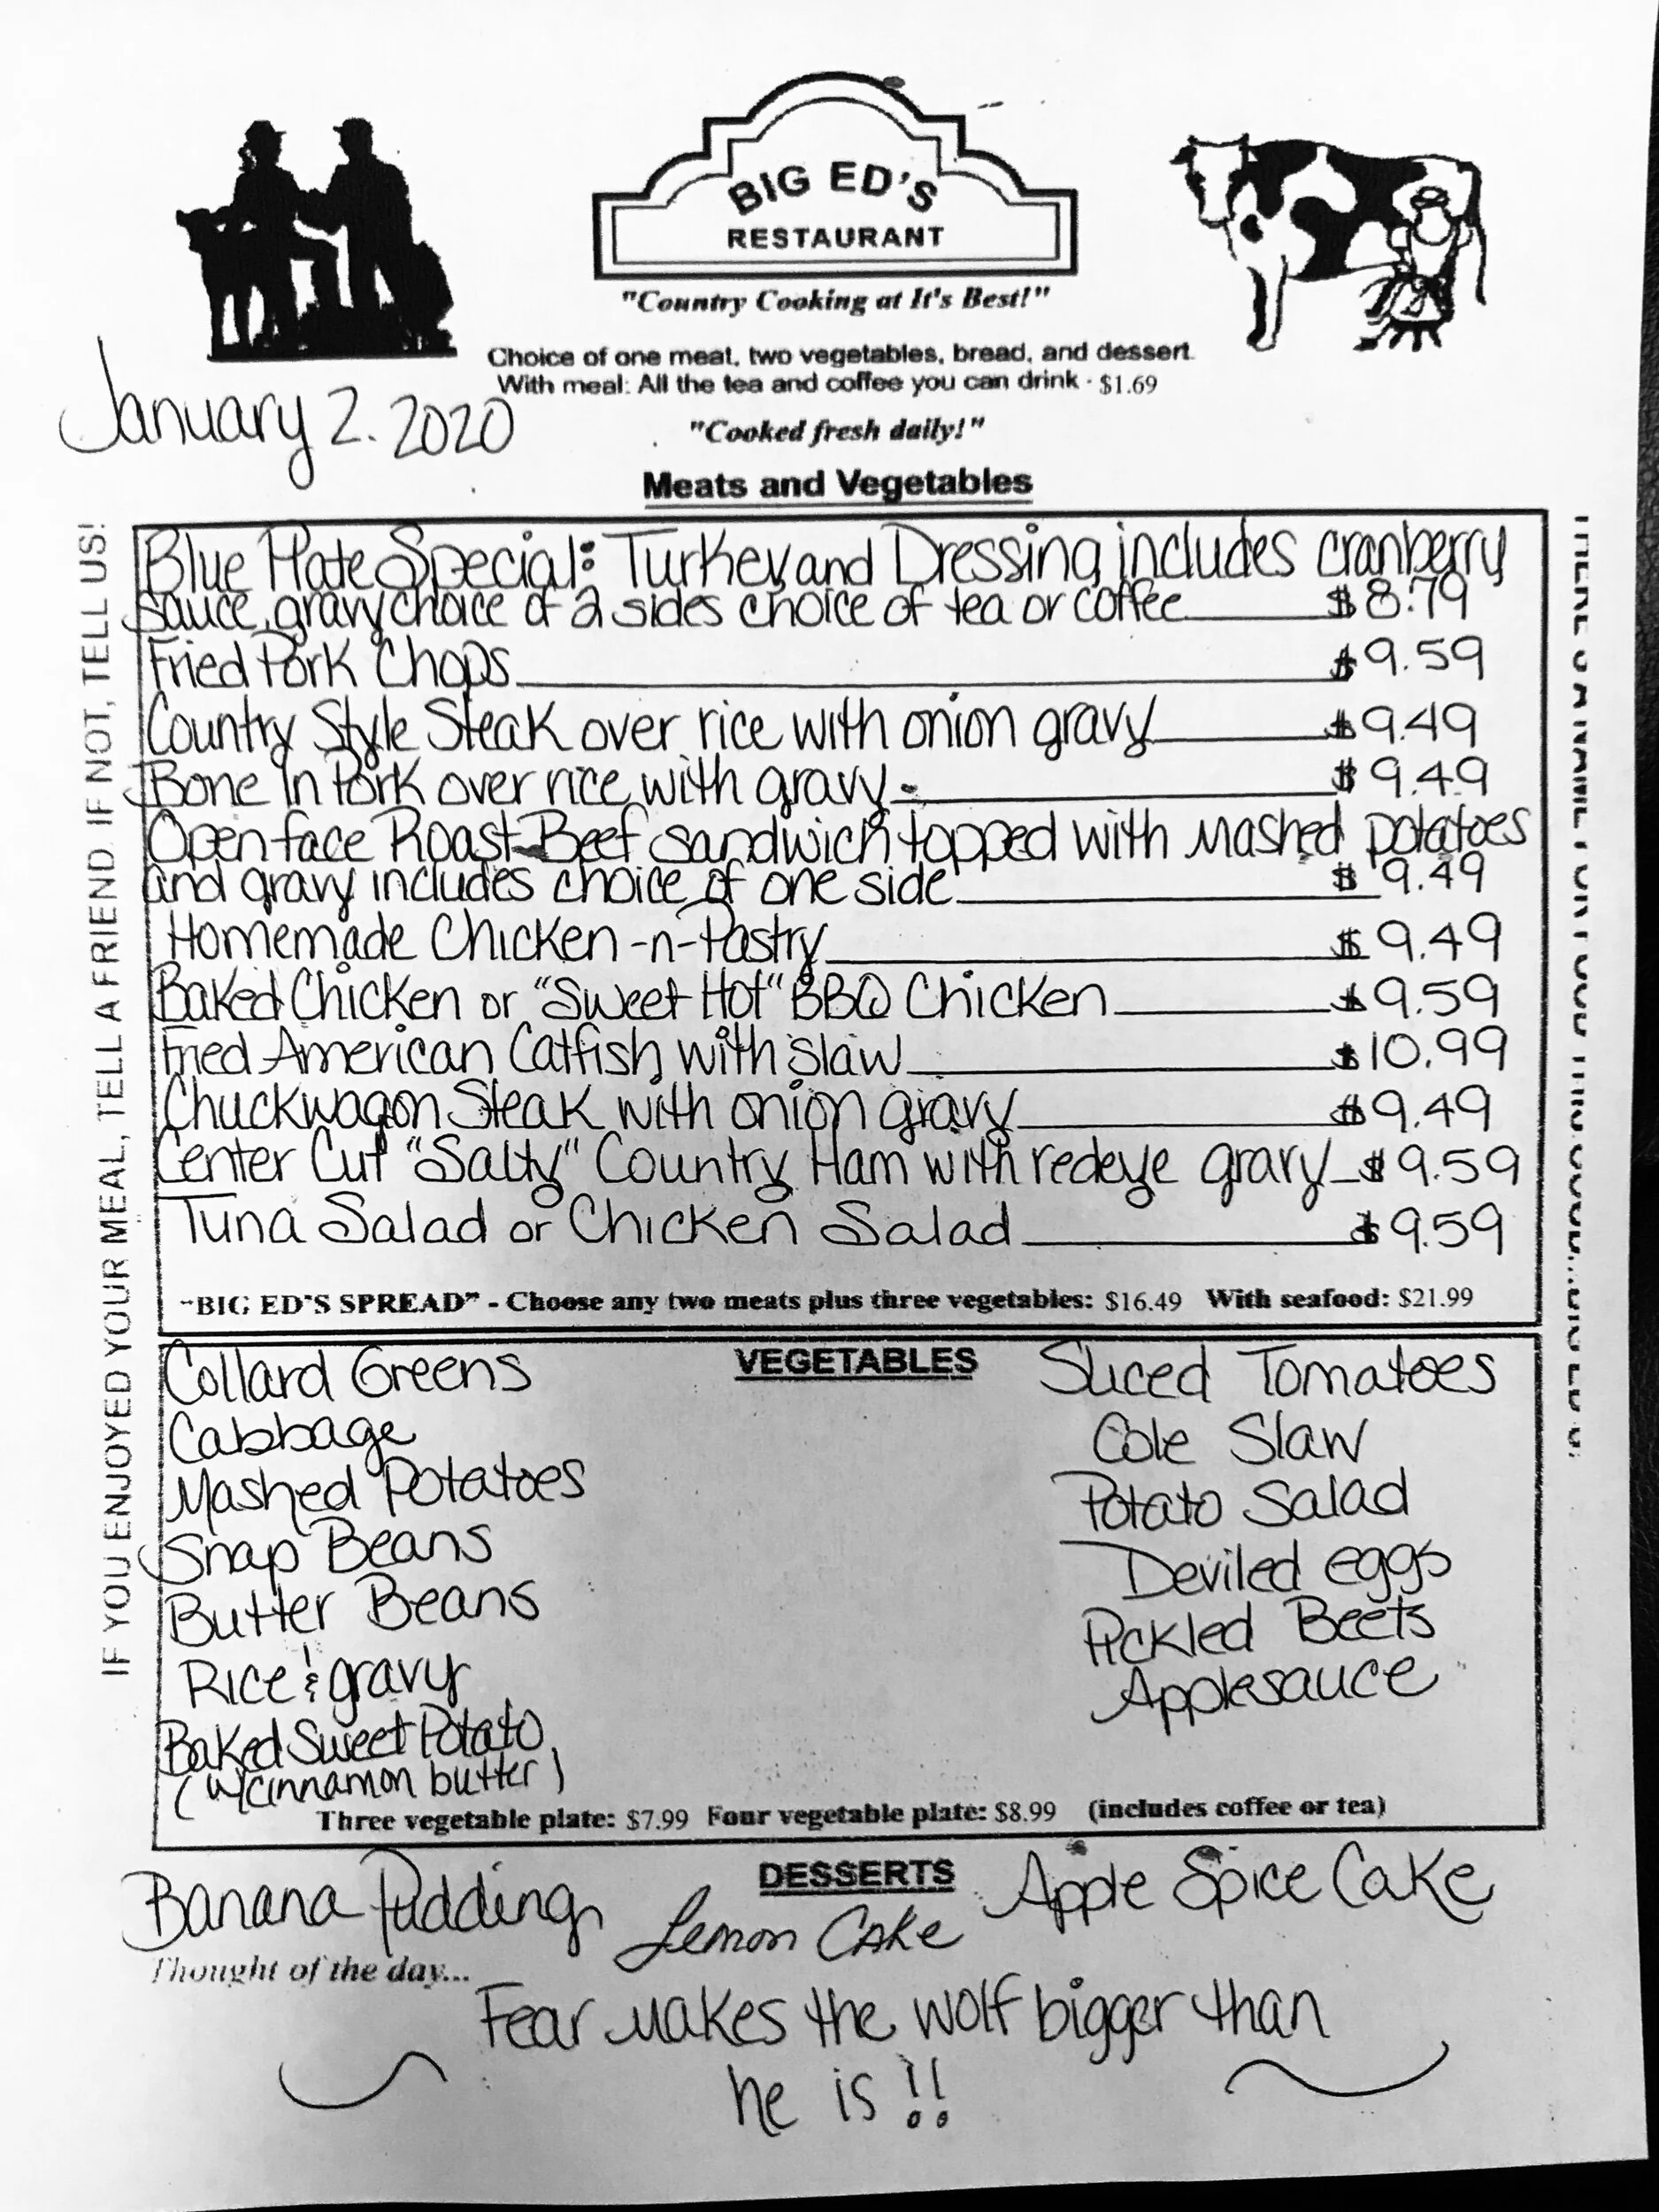 BIG ED'S
RESTAURANT
"Country Cooking at It's Best!"
Choice of one meat, two vegetables, bread, and dessert.
With meal: All the tea and coffee you can drink - $1.69
January 2. 2020
"Cooked fresh daily!"
Meats and Vegetables
Blue Plate Special: Turkey and Dressing includes cranberry
sauce, gravy choice of 2 sides choice of tea or coffee $8.79
Fried Pork Chops $9.59
Country Style Steak over rice with onion gravy $9.49
Bone In Pork over rice with gravy $9.49
Open face Roast Beef sandwich topped with mashed potatoes
and gravy includes choice of one side $9.49
Homemade Chicken-n-Pastry $9.49
Baked Chicken or "Sweet Hot" BBQ Chicken $9.59
Fried American Catfish with slaw $10.99
Chuckwagon Steak with onion gravy $9.49
Center Cut "Salty" Country Ham with redeye gravy $9.59
Tuna Salad or Chicken Salad $9.59
"BIG ED'S SPREAD" - Choose any two meats plus three vegetables: $16.49 With seafood: $21.99
VEGETABLES
Collard Greens
Cabbage
Mashed Potatoes
Snap Beans
Butter Beans
Rice & gravy
Baked Sweet Potato
(w/cinnamon butter)
Sliced Tomatoes
Cole Slaw
Potato Salad
Deviled eggs
Pickled Beets
Applesauce
Three vegetable plate: $7.99 Four vegetable plate: $8.99 (includes coffee or tea)
DESSERTS
Banana Pudding
Lemon Cake
Apple Spice Cake
Thought of the day...
Fear makes the wolf bigger than
he is!!
IF YOU ENJOYED YOUR MEAL, TELL A FRIEND. IF NOT, TELL US!